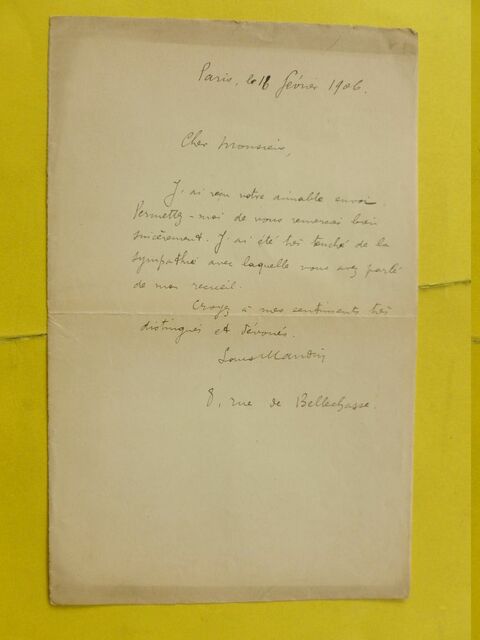 Paris, le 16 février 1906.
Cher Monsieur,
J'ai reçu votre aimable envoi.
Permettez-moi de vous remercier bien
sincèrement. J'ai été très touché de la
sympathie avec laquelle vous avez parlé
de mon recueil.
Croyez à mes sentiments très
distingués et dévoués.
Louis Mandin
8, rue de Bellechasse.